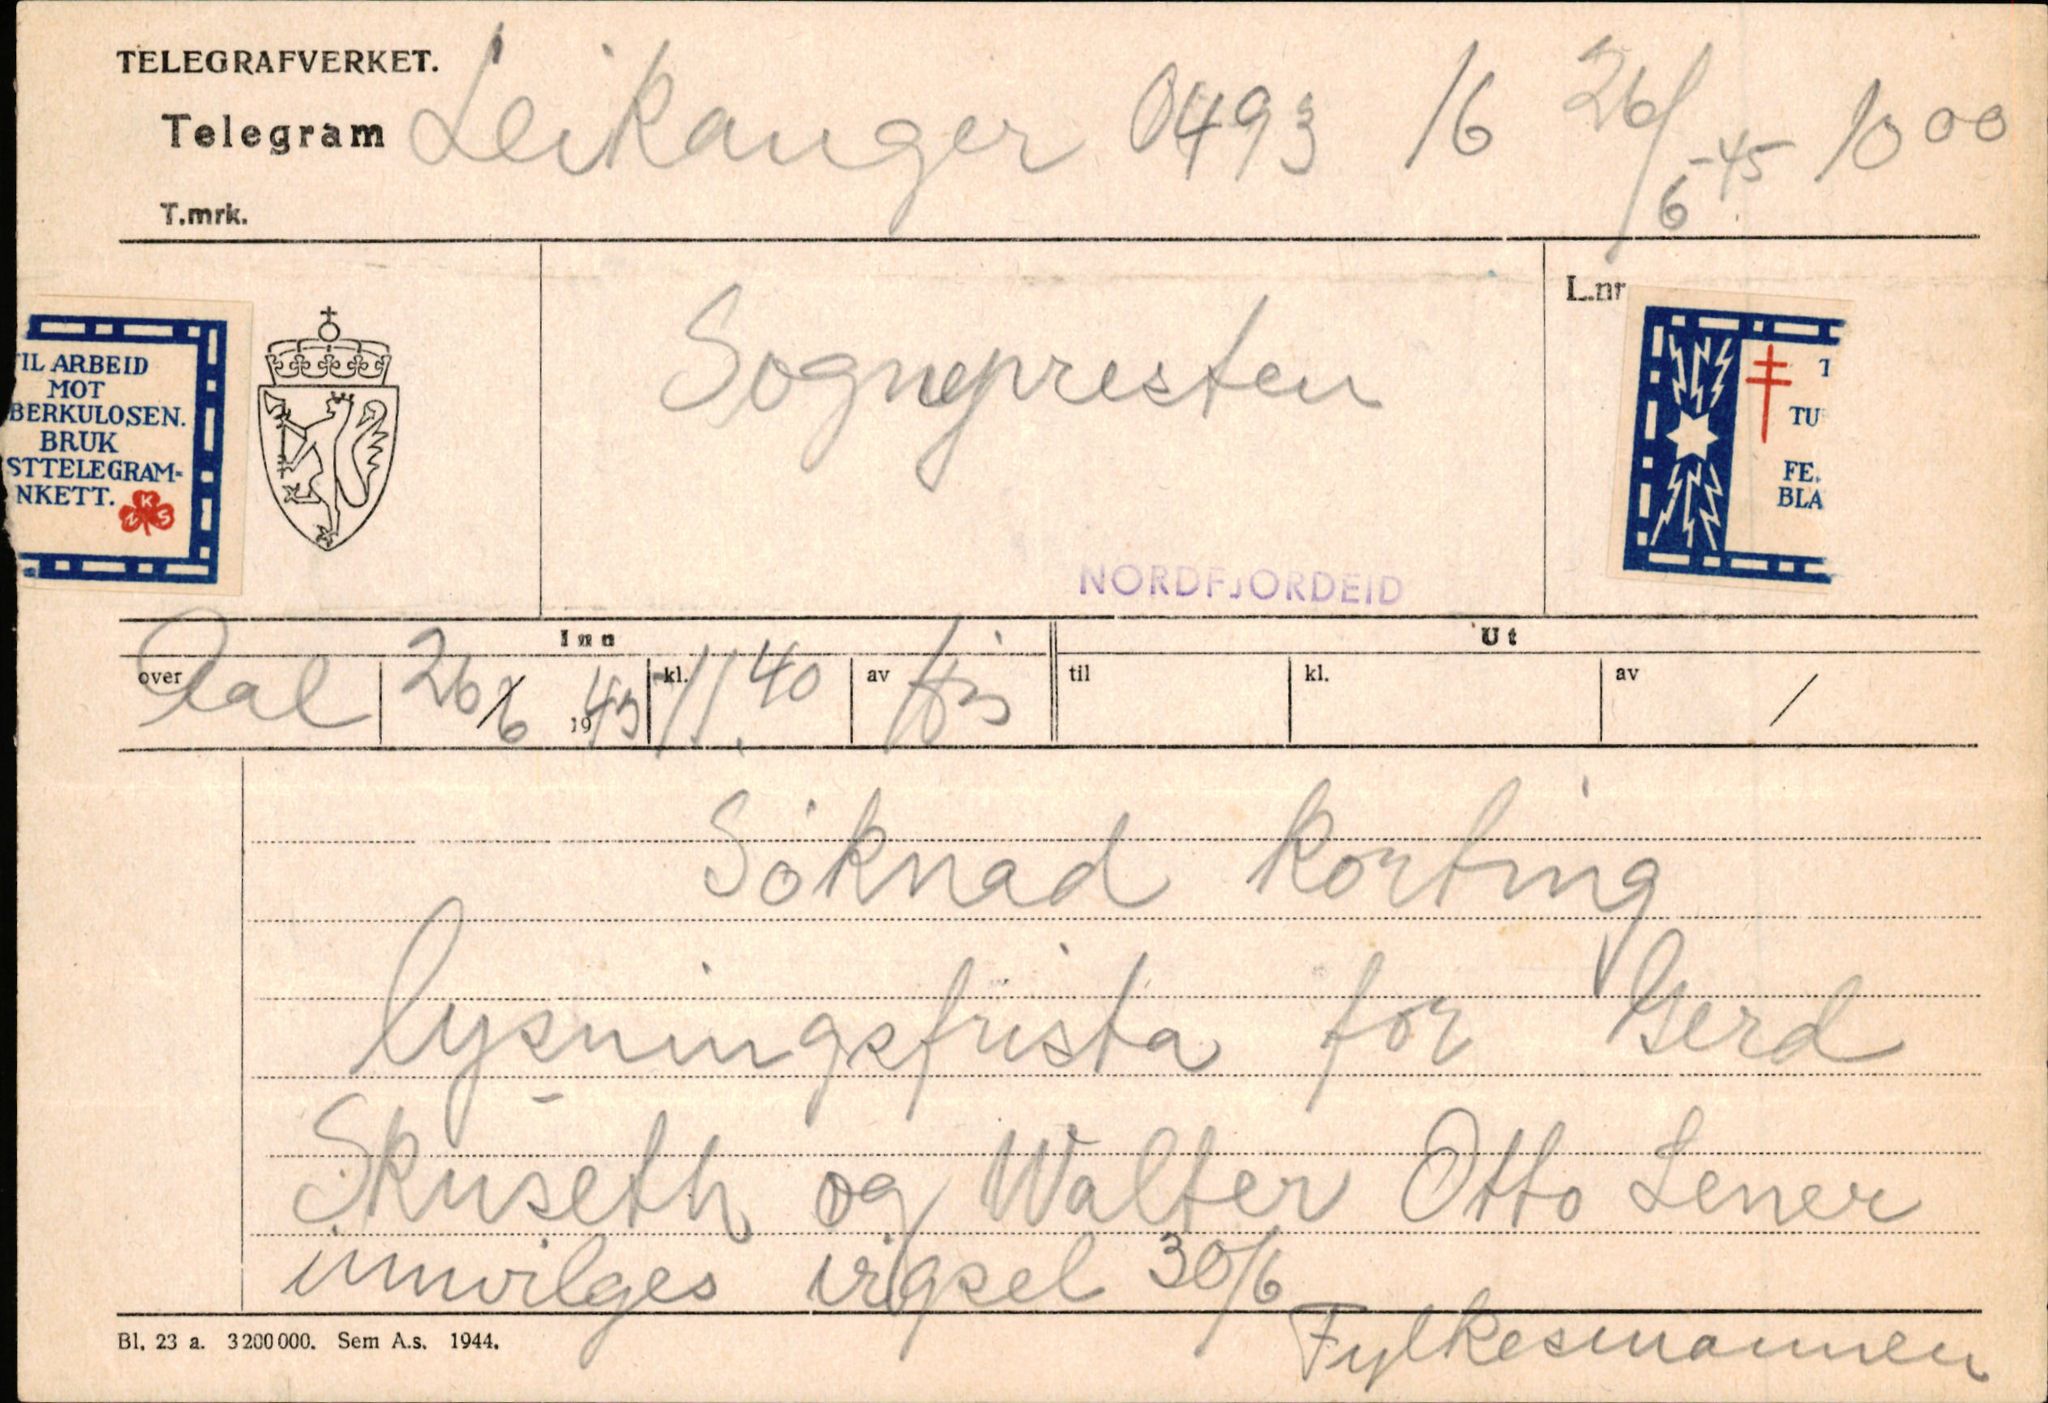 TELEGRAFVERKET.
Telegram Leikanger 0493 16 26/6-45 10 00
T.mrk.
L.nr
TIL ARBEID
MOT
BERKULOSEN.
BRUK
STTELEGRAM-
NKETT.
N K S
Sognepresten
T
TU
FE
BLA
NORDFJORDEID
Inn Ut
over Aal 26/6 1945 kl. 11.40 av til kl. av /
Söknad korting
lysningsfrista for Gerd
Skuseth og Walter Otto Lener
innvilges vigsel 30/6
Fylkesmannen
Bl. 23 a. 3200000. Sem A.s. 1944.